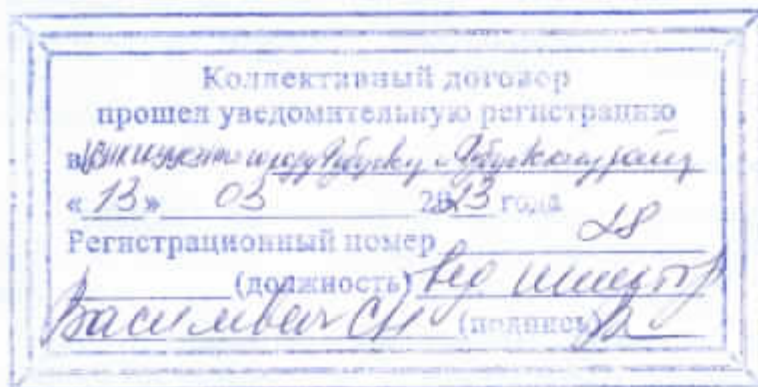 Коллективный договор
прошел уведомительную регистрацию
в
«13» 03 2023 года
Регистрационный номер 28
(должность) вед инспектор
(подпись)